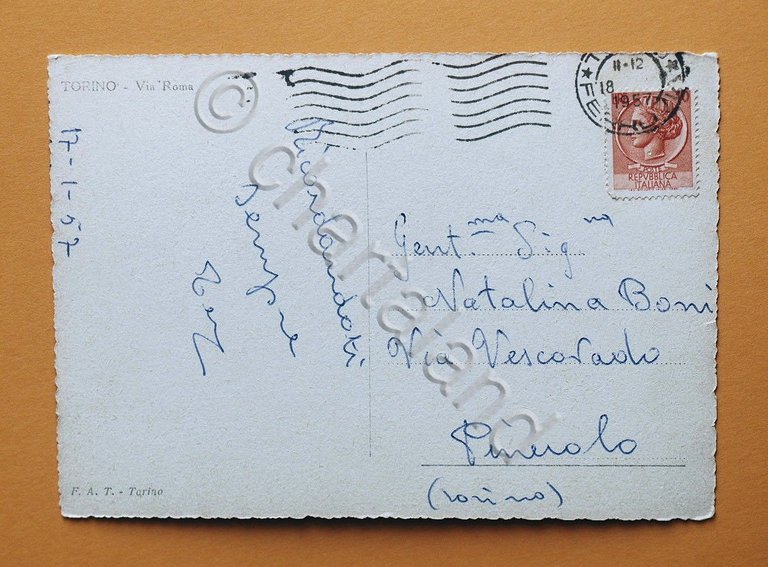 TORINO - Via Roma
17-1-57
Ricordandoti
sempre
11-12
18
1957
FERROVIA
POSTE
REPVBBLICA
ITALIANA
Gent.ma Sig.na
Natalina Boni
Via Vescovado
Pinerolo
(Torino)
F. A. T. - Torino
© chartaland